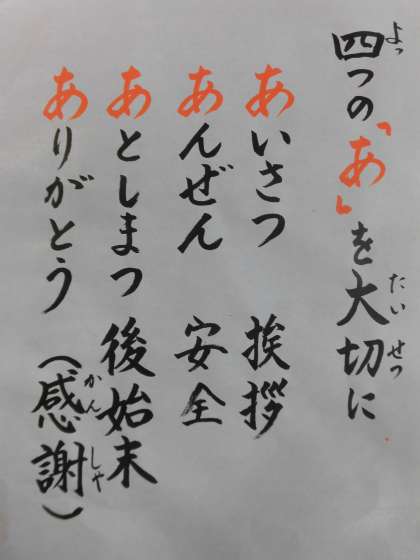 四つの「あ」を大切に
あいさつ 挨拶
あんぜん 安全
あとしまつ 後始末
ありがとう (感謝)
よっ
たい せつ
かん しゃ